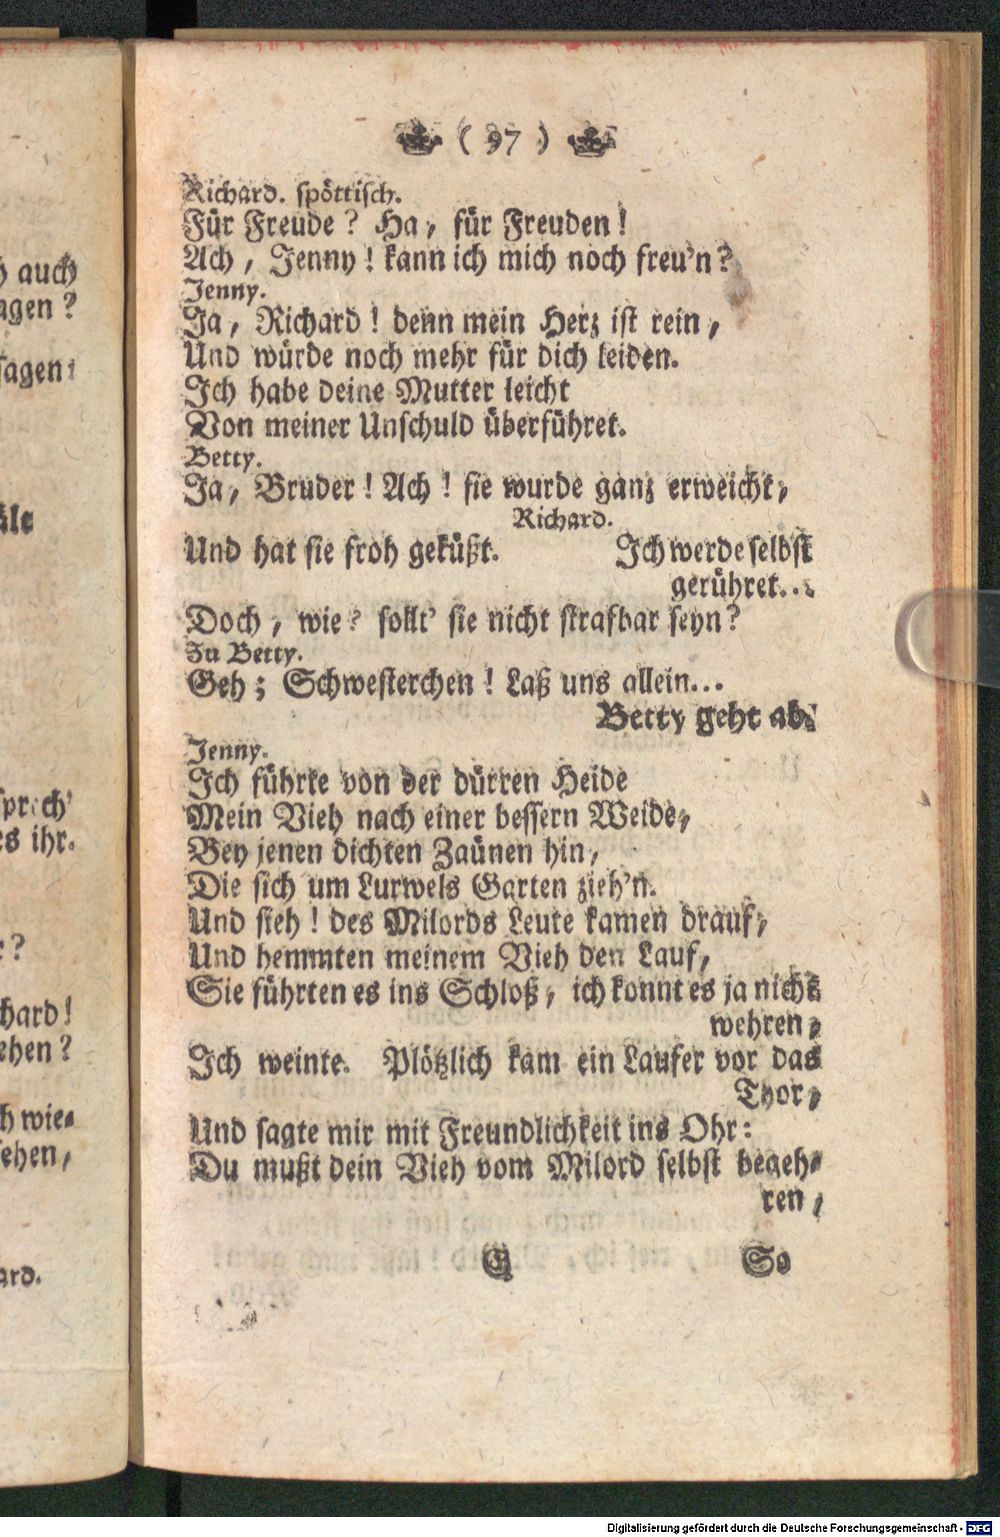 ( 97 )
Richard. spöttisch.
Für Freude? Ha, für Freuden!
Ach, Jenny! kann ich mich noch freu'n?
Jenny.
Ja, Richard! denn mein Herz ist rein,
Und würde noch mehr für dich leiden.
Ich habe deine Mutter leicht
Von meiner Unschuld überführet.
Betty.
Ja, Bruder! Ach! sie wurde ganz erweicht,
Richard.
Und hat sie froh geküßt. Ich werde selbst
gerühret...
Doch, wie? sollt' sie nicht strafbar seyn?
Zu Betty.
Geh; Schwesterchen! Laß uns allein...
Betty geht ab.
Jenny.
Ich führte von der dürren Heide
Mein Vieh nach einer bessern Weide,
Bey jenen dichten Zaünen hin,
Die sich um Lurwels Garten zieh'n.
Und sieh! des Milords Leute kamen drauf,
Und hemmten meinem Vieh den Lauf,
Sie führten es ins Schloß, ich konnt es ja nicht
wehren,
Ich weinte. Plötzlich kam ein Laufer vor das
Thor,
Und sagte mir mit Freundlichkeit ins Ohr:
Du mußt dein Vieh vom Milord selbst begeh-
ren,
G So
auch
agen?
sagen
es ihr.
hard!
ehen?
wie-
sehen,
ard.
Digitalisierung gefördert durch die Deutsche Forschungsgemeinschaft - DFG